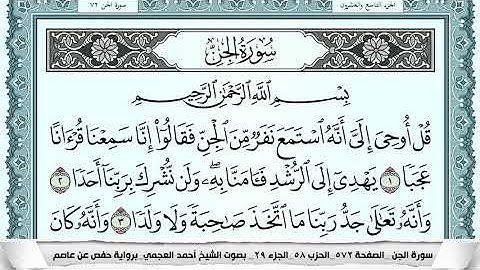 الجزء التاسع والعشرون
سورة الجن ٧٢
سُورَةُ الجِنِّ
بِسْمِ اللَّهِ الرَّحْمَٰنِ الرَّحِيمِ
قُلْ أُوحِىَ إِلَىَّ أَنَّهُ ٱسْتَمَعَ نَفَرٌ مِّنَ ٱلْجِنِّ فَقَالُوٓا۟ إِنَّا سَمِعْنَا قُرْءَانًا
عَجَبًا ١ يَهْدِىٓ إِلَى ٱلرُّشْدِ فَـَٔامَنَّا بِهِۦ ۖ وَلَن نُّشْرِكَ بِرَبِّنَآ أَحَدًا ٢
وَأَنَّهُۥ تَعَٰلَىٰ جَدُّ رَبِّنَا مَا ٱتَّخَذَ صَٰحِبَةً وَلَا وَلَدًا ٣ وَأَنَّهُۥ كَانَ
سورة الجن _ الصفحة ٥٧٢ _ الحزب ٥٨ _ الجزء ٢٩ _ بصوت الشيخ أحمد العجمي _ برواية حفص عن عاصم